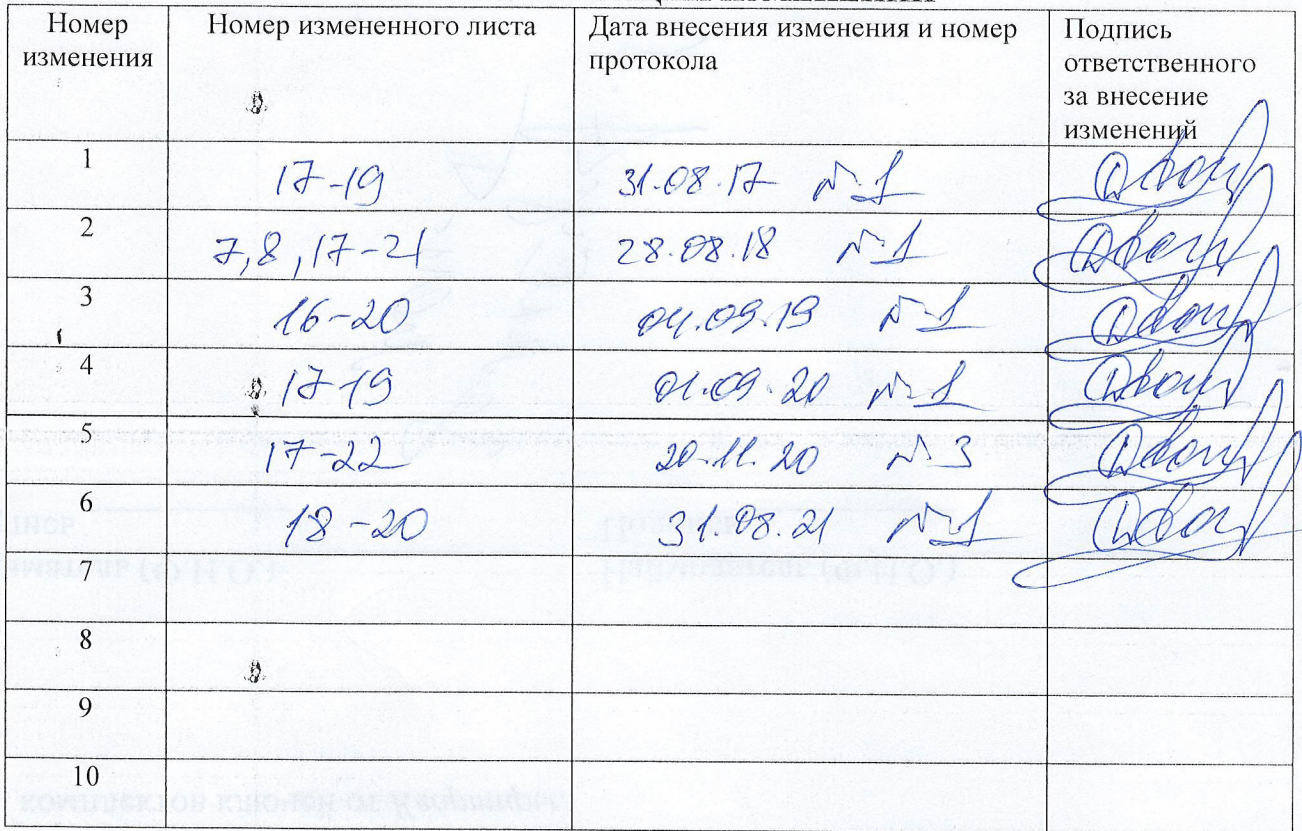 Номер изменения | Номер измененного листа | Дата внесения изменения и номер протокола | Подпись ответственного за внесение изменений
1 | 17-19 | 31.08.17 №1
2 | 7,8,17-21 | 28.08.18 №1
3 | 16-20 | 04.09.19 №1
4 | 17-19 | 01.09.20 №1
5 | 17-22 | 20.11.20 №3
6 | 18-20 | 31.08.21 №1
7
8
9
10